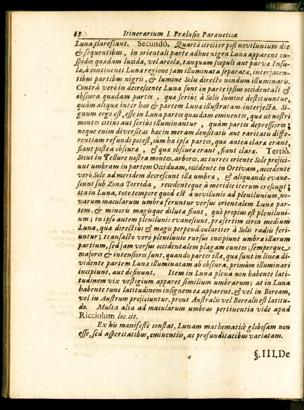 62 Itinerarium I. Prælusio Parænetica
Luna clarescant. Secundò. Quartà circiter post novilunium die
& sequentibus, in orientali parte adhuc nigra Luna apparent cu-
spides quædam lucida, vel arcola, tanquam scopuli aut parva Insu-
la, à continenti Luna regione jam illuminata separata, interjacen-
tibus partibus nigris, & lumine Solis directo nondum illuminatis.
Contrà verò in decrescente Luna sunt in parte ipsius occidentali &
obscura quadam partes, qua seriùs à Solis lumine destituuntur,
quàm aliqua inter has & partem Luna illustratam interjecta. Si-
gnum ergo est, esse in Luna partes quasdam eminentes, qua ut nostri
montes citiùs aut seriùs illuminantur, quàm partes depressiores;
neque enim diversitas hac in meram densitatis aut raritatis diffe-
rentiam refundi potest, cùm ha ipsa partes, qua antea clara erant,
fiant postea obscura, & qua obscura erant, fiant clara. Tertiò.
Sicut in Tellure nostra montes, arbores, ac turres oriente Sole projici-
unt umbram in partem Occiduam, occidente in Ortivam, accedente
verò Sole ad meridem decrescunt illa umbra, & aliquando evane-
scunt sub Zona Torrida, recedenteque à meridie iterum crescunt;
ita in Luna, toto tempore quod est à novilunio ad plenilunium,
varum macularum umbra feruntur versus orientalem Luna par-
tem, & minores magisque diluta fiunt, quò propius est plenilu-
nium; in ipso autem plenilunio evanescunt, præsertim circa medium
Luna, qua directiùs & magis perpendiculariter à Solis radiis feri-
untur; transacto verò plenilunio rursus incipiunt umbra illarum
partium, sed jam versus occidentalem plagam euntes; semperque
majores & intensiores sunt, quando partes illa, qua sunt in linea di-
vidente partem Luna illuminatam ab obscura, primùm illuminari
incipiunt, aut desinunt. Item in Luna plena non habente lati-
tudinem vix vestigium apparet similium umbrarum; at in Luna
habente tunc latitudinem insignem ea apparent, & vel in Boream,
vel in Austrum projiciuntur, prout Australis vel Borealis est latitu-
do. Multa alia ad macularum umbras pertinentia vide apud
Ricciolum loc. cit.
Ex his manifestè constat, Lunam mathematicè globosam non
esse, sed asperitatibus, eminentiis, ac profunditatibus variatam.
§. III. De